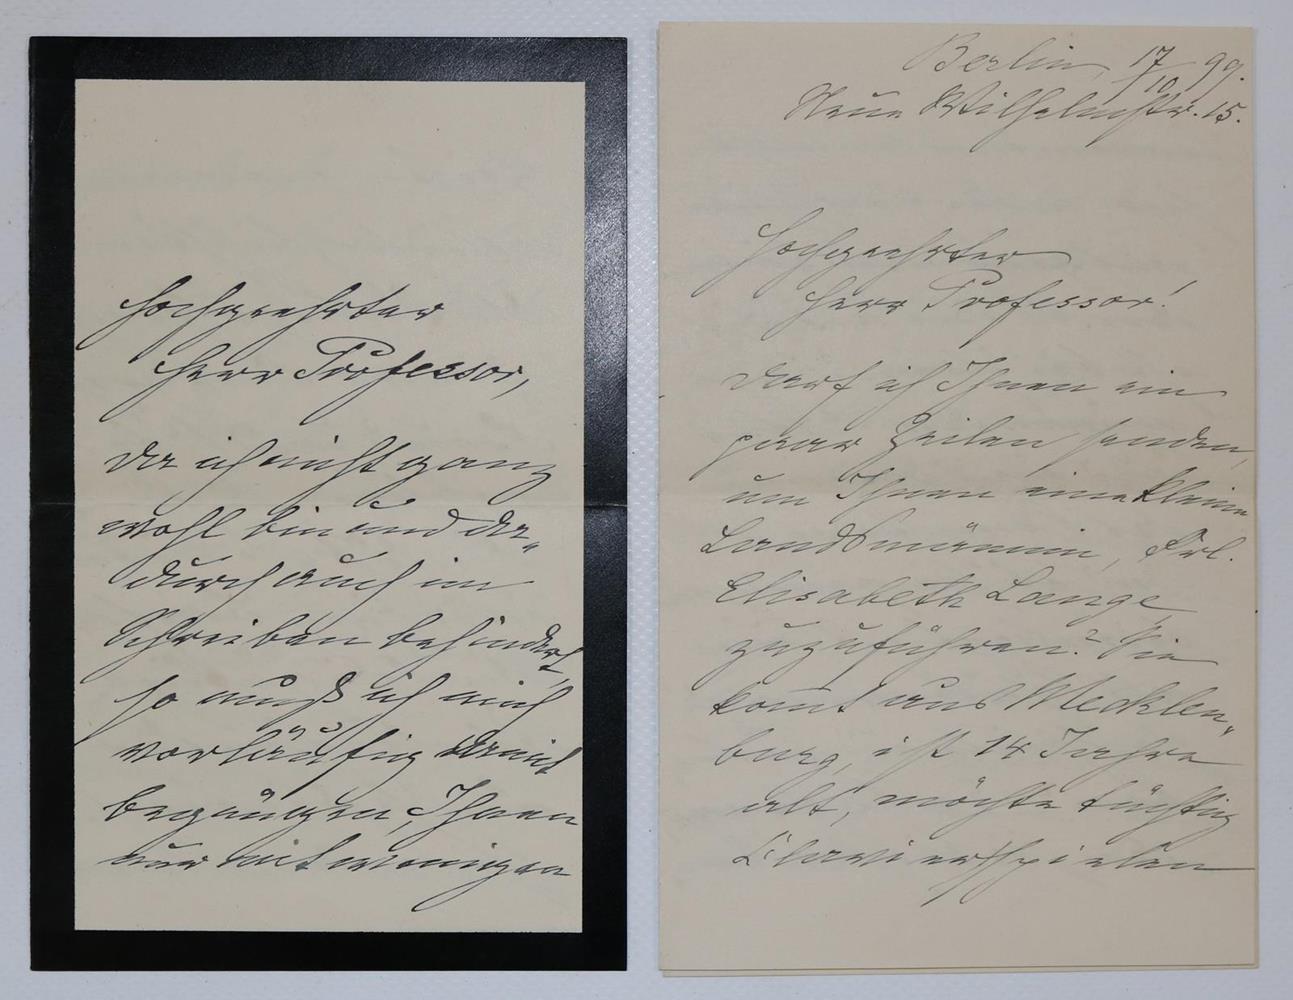 Hochgeehrter
Herr Professor,
da ich nicht ganz
wohl bin und da-
durch auch im
Schreiben behindert,
so muß ich mich
vorläufig damit
begnügen, Ihnen
nur mit wenigen
Berlin, 17/10 99.
Neue Wilhelmstr. 15.
Hochgeehrter
Herr Professor!
Darf ich Ihnen ein
paar Zeilen senden,
um Ihnen eine kleine
Landsmännin, Frl.
Elisabeth Lange,
zuzuführen? Sie
komt aus Mecklen-
burg, ist 14 Jahre
alt, möchte tüchtig
Clavierspielen